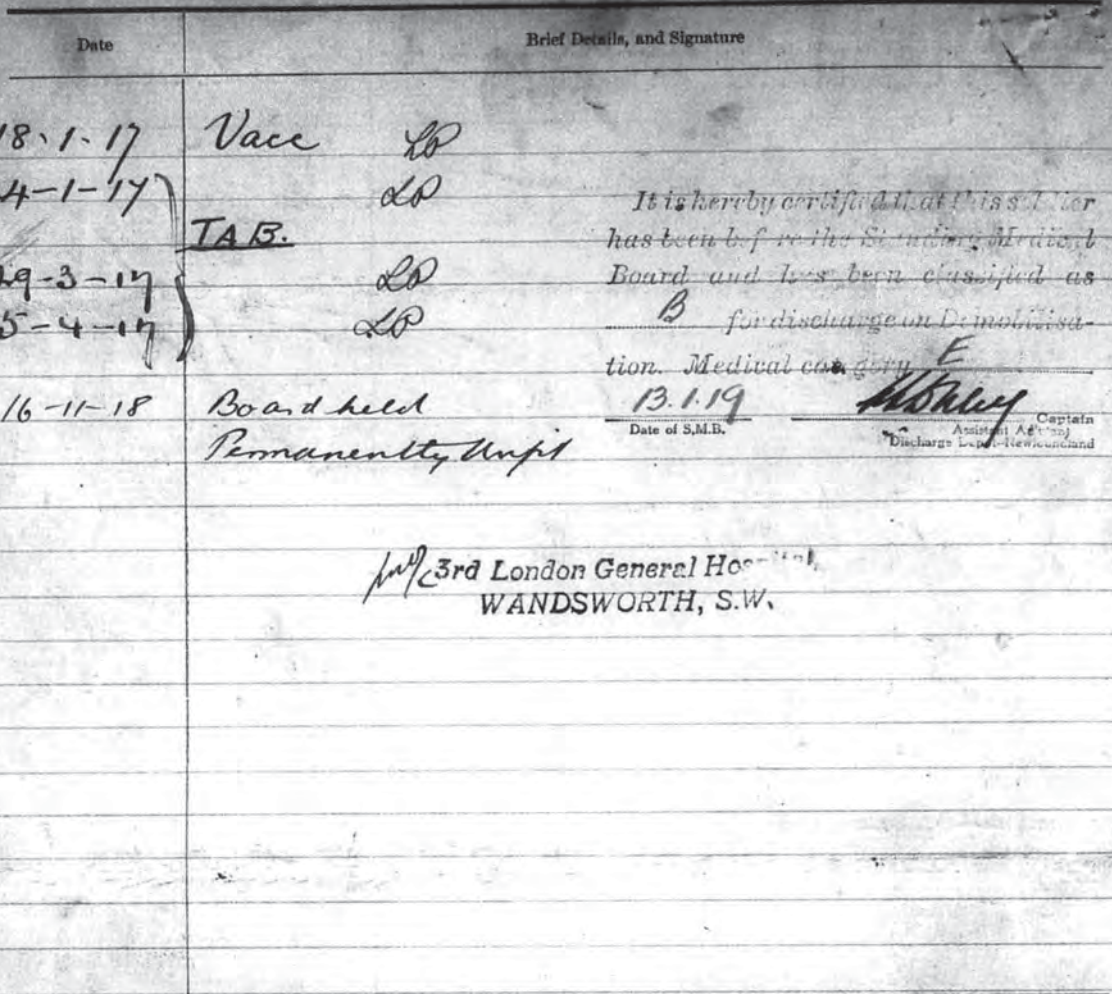 Date Brief Details, and Signature
18-1-17 Vacc LP
4-1-17 LP
TAB.
29-3-17 LP
5-4-17 LP
It is hereby certified that this soldier
has been before the Standing Medical
Board and has been classified as
B for discharge on Demobilisa-
tion. Medical category E
16-11-18 Board held
Permanently Unfit
13.1.19
Date of S.M.B.
Captain
Assistant Adjutant
Discharge Depot-Newfoundland
3rd London General Hospital,
WANDSWORTH, S.W.